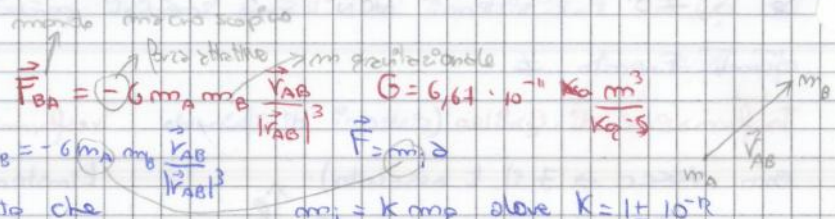 mondo macroscopico
forza attrattiva → m gravitazionale
F⃗_BA = - G m_A m_B r⃗_AB / |r⃗_AB|³ G = 6,67 · 10⁻¹¹ m³ / Kg · s
m_B
r⃗_AB
m_A
B = - G m_A m_B r⃗_AB / |r⃗_AB|³ F⃗ = m_i a
to che m_i = K m_g dove K = 1 ± 10⁻¹²